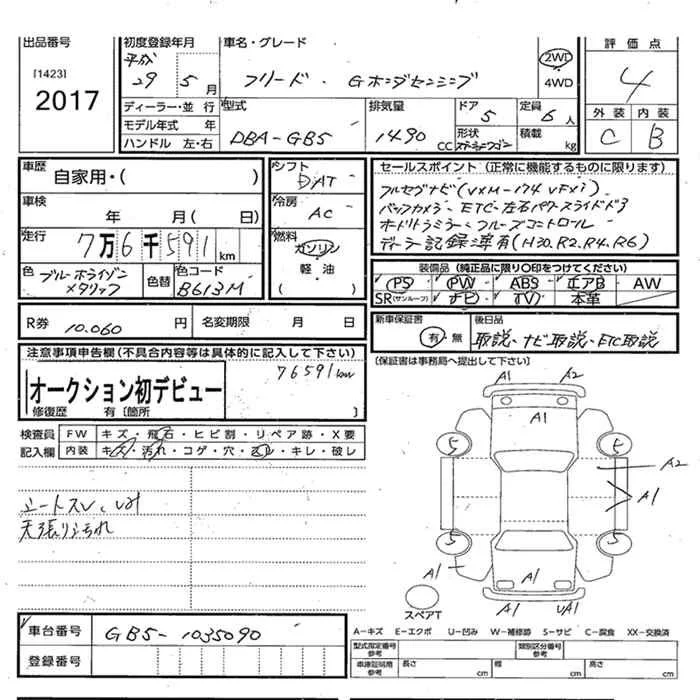 出品番号 初度登録年月 車名・グレード 評価点
[1423] 平成 29年 5月 フリード・Gホンダセンシング 2WD 4WD 4
2017 ディーラー・並行 型式 排気量 ドア 5 定員 6人 外装 内装
モデル年式 年 DBA-GB5 1490 CC 形状 積載 kg C B
ハンドル 左・右
車歴 自家用・( ) シフト DAT セールスポイント(正常に機能するものに限ります)
車検 年 月( 日) 冷房 AC フルセグナビ(VXM-174VFXi)
バックカメラ・ETC・左右パワースライドドア
走行 7万6千591km 燃料 ガソリン 軽油 ( ) オートリトラミラー・クルーズコントロール
ディーラー記録簿有(H30.R2.R4.R6)
色 ブルーホライゾンメタリック 色替 色コード B613M 装備品(純正品に限り○印をつけてください)
PS PW ABS エアB AW
SR(サンルーフ) ナビ TV 本革
R券 10.060 円 名変期限 月 日 新車保証書 有・無 後日品 取説、ナビ取説、ETC取説
注意事項申告欄(不具合内容等は具体的に記入して下さい) (保証書は事務局へ提出して下さい)
76591km
オークション初デビュー
修復歴 有〔箇所 〕
検査員 FW キズ・飛石・ヒビ割・リペア跡・X要
記入欄 内装 キズ・汚れ・コゲ・穴・スレ・キレ・破レ
シートスレ、
天張りよごれ
A1 A2
A1
5 5
A2
A1
5 5
A1 A1
A1 UA1
スペアT
車台番号 GB5-1035090
登録番号
A-キズ E-エクボ U-凹み W-補修跡 S-サビ C-腐食 XX-交換済
型式指定番号 参考 類別区分番号 参考
車庫証明用 参考 長さ cm 幅 cm 高さ cm